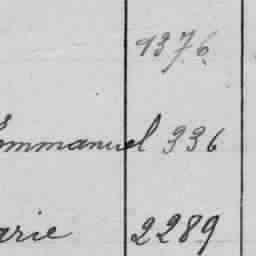 1376
Emmanuel 336
arie 2289